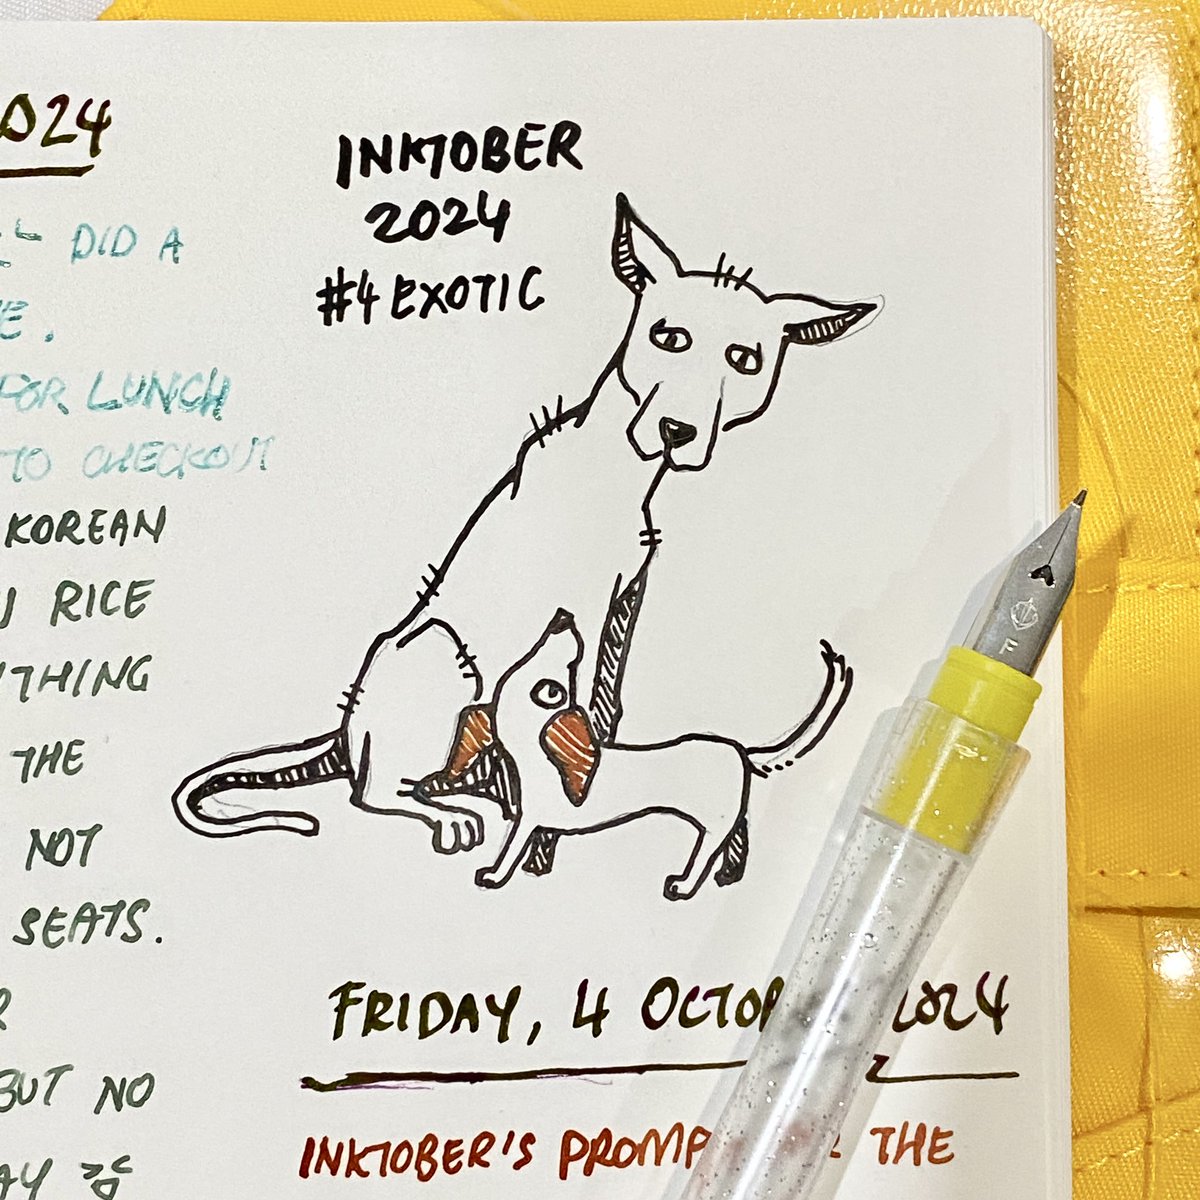 2024
DID A
FOR LUNCH
TO CHECKOUT
KOREAN
RICE
THE
NOT
SEATS.
BUT NO
INKTOBER
2024
#4 EXOTIC
FRIDAY, 4 2024
INKTOBER'S THE
F